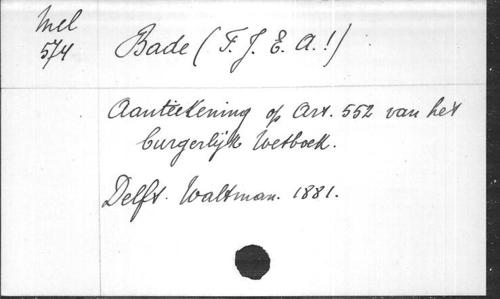 Mel
574
Bade (F. J. E. A.!)
Aanteekening op Art. 552 van het
burgerlijk Wetboek.
Delft. Waltman. 1881.